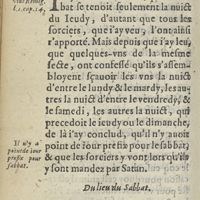 l.1.cap.14.
bat se tenoit seulement la nuict
du Ieudy, d'autant que tous les
sorciers, que i'ay veu, l'ont ainsi
r'apporté. Mais depuis que i'ay leu,
que quelques-vns de la mesme
secte, ont confessé qu'ils s'assem
bloyent sçauoir les vns la nuict
d'entre le lundy & le mardy, les au-
tres la nuict d'entre le vendredy, &
le samedi, les autres la nuict, qui
precedoit le ieudy ou le dimanche,
de là i'ay conclud, qu'il n'y auoit
Il n'y a
point de iour
prefix pour
sabbat.
point de iour prefix pour le sabbat,
& que les sorciers y vont lors qu'ils
y sont mandez par Satan.
Du lieu du Sabbat.